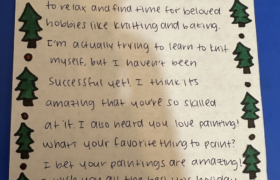 to relax and find time for beloved
hobbies like knitting and baking.
I'm actually trying to learn to knit
myself, but I haven't been
successful yet! I think it's
amazing that you're so skilled
at it. I also heard you love painting!
What's your favorite thing to paint?
I bet your paintings are amazing!
I wish you all the best this holiday